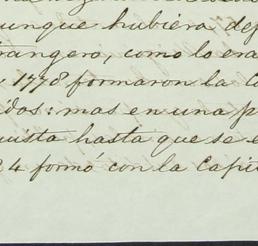 unque hubiera dep
trangero, como lo era
1778 formaron la C
idos: mas en una p
uista hasta que se e
24 formó con la Capit